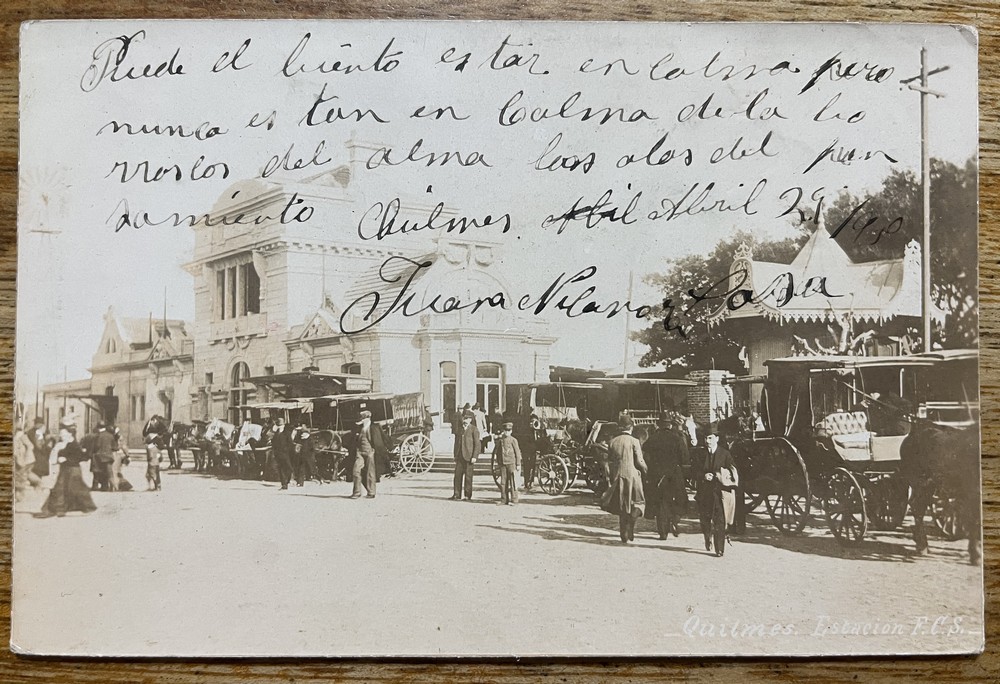 Puede el biento estar en calma pero
nunca es tan en Calma de la bo
rrascos del alma laas alas del pen
samiento Quilmes. Abril 29
Juana
Quilmes. Estacion F.C.S.